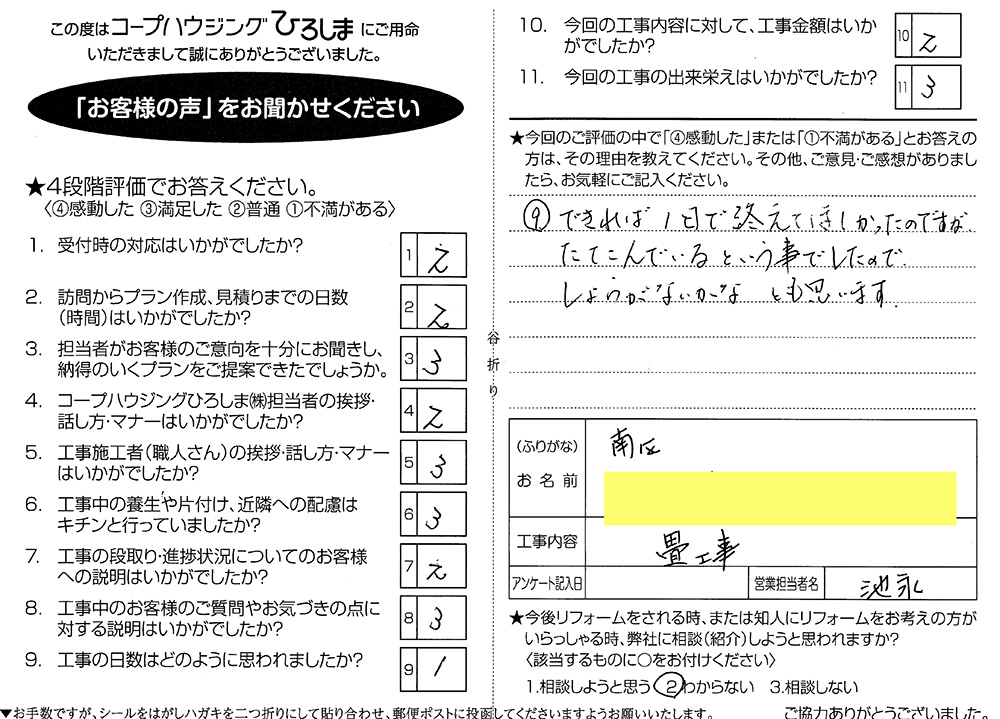 この度はコープハウジングひろしまにご用命
いただきまして誠にありがとうございました。
「お客様の声」をお聞かせください
★4段階評価でお答えください。
〈④感動した ③満足した ②普通 ①不満がある〉
1. 受付時の対応はいかがでしたか? 1 2
2. 訪問からプラン作成、見積りまでの日数
(時間)はいかがでしたか? 2 2
3. 担当者がお客様のご意向を十分にお聞きし、
納得のいくプランをご提案できたでしょうか。 3 3
4. コープハウジングひろしま㈱担当者の挨拶・
話し方・マナーはいかがでしたか? 4 2
5. 工事施工者(職人さん)の挨拶・話し方・マナー
はいかがでしたか? 5 3
6. 工事中の養生や片付け、近隣への配慮は
キチンと行っていましたか? 6 3
7. 工事の段取り・進捗状況についてのお客様
への説明はいかがでしたか? 7 2
8. 工事中のお客様のご質問やお気づきの点に
対する説明はいかがでしたか? 8 3
9. 工事の日数はどのように思われましたか? 9 1
▼お手数ですが、シールをはがしハガキを二つ折りにして貼り合わせ、郵便ポストに投函してくださいますようお願いいたします。
谷折り
10. 今回の工事内容に対して、工事金額はいか
がでしたか? 10 2
11. 今回の工事の出来栄えはいかがでしたか? 11 3
★今回のご評価の中で「④感動した」または「①不満がある」とお答えの
方は、その理由を教えてください。その他、ご意見・ご感想がありまし
たら、お気軽にご記入ください。
⑨できれば1日で終えてほしかったのですが、
たてこんでいるという事でしたので、
しょうがないかな とも思います。
(ふりがな)
お名前 南区
工事内容 畳工事
アンケート記入日 営業担当者名 池永
★今後リフォームをされる時、または知人にリフォームをお考えの方が
いらっしゃる時、弊社に相談(紹介)しようと思われますか?
〈該当するものに○をお付けください〉
1.相談しようと思う 2.わからない 3.相談しない
ご協力ありがとうございました。